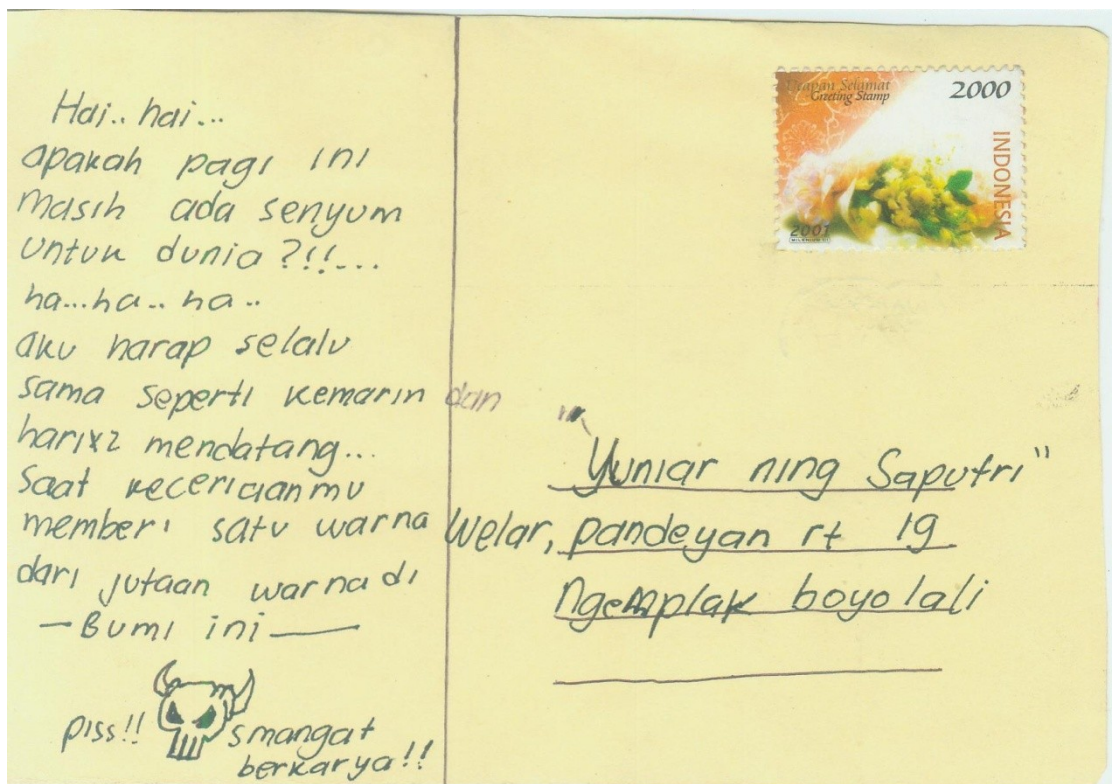 Hai.. hai...
apakah pagi ini
masih ada senyum
untuk dunia ?!!....
ha...ha.. ha..
aku harap selalu
sama seperti kemarin dan
harix2 mendatang...
saat kecericianmu
memberi satu warna
dari jutaan warna di
— Bumi ini —
piss!! smangat
berkarya!!
Ucapan Selamat
Greeting Stamp
2000
INDONESIA
2001
"Yuniar ning Saputri"
Welar, pandeyan rt 19
Ngemplak boyolali